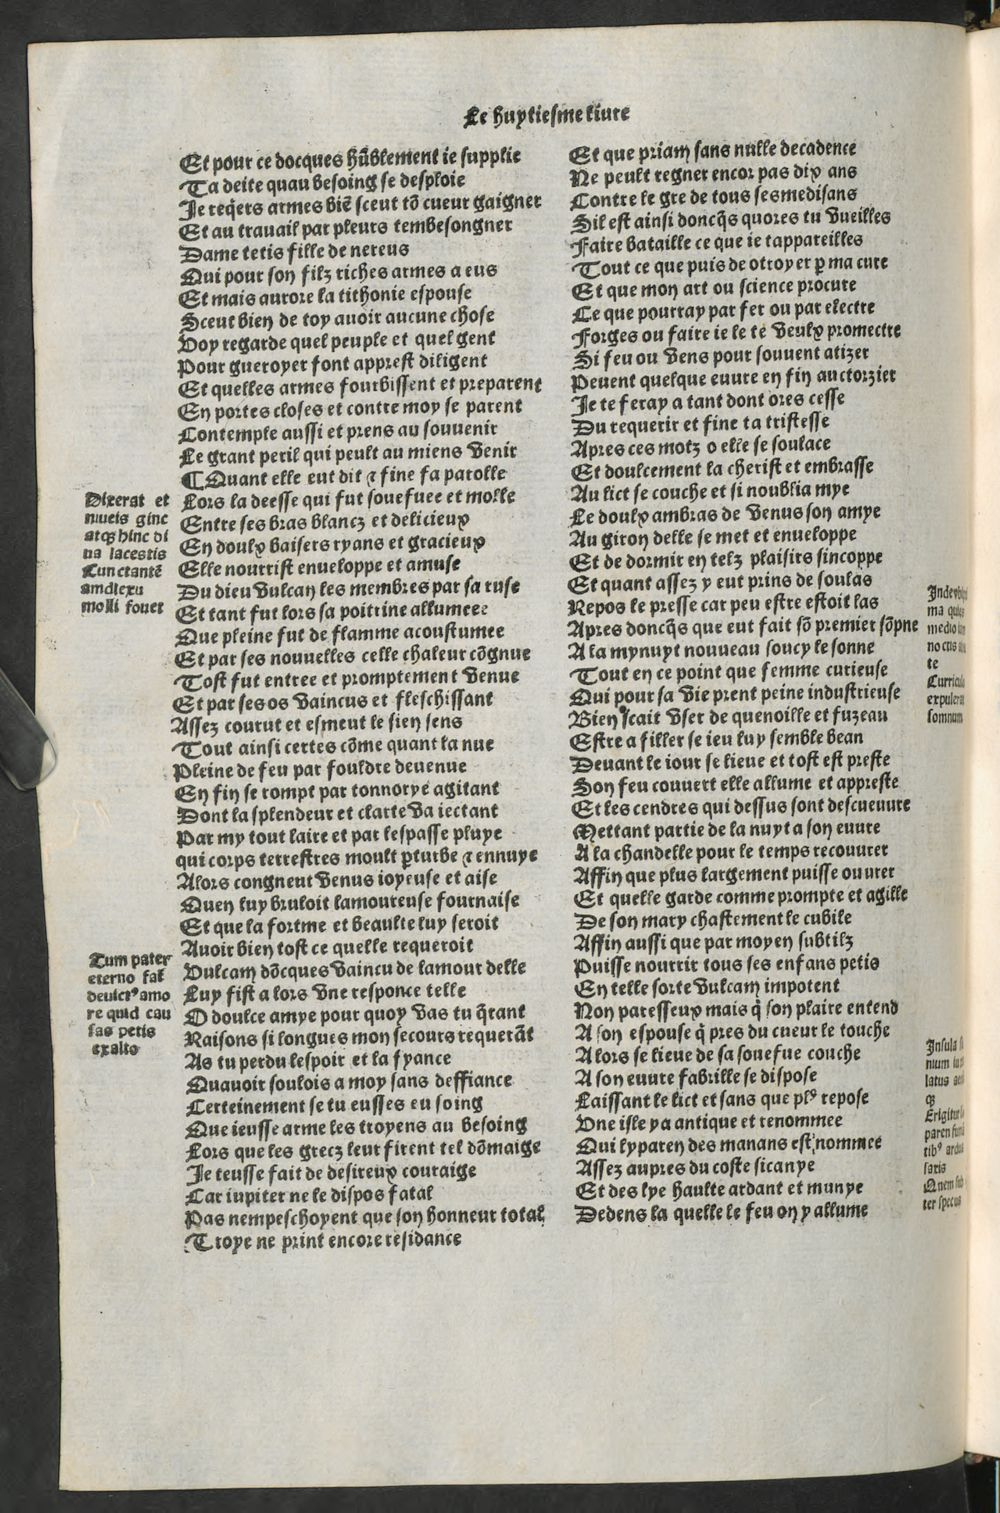 Le huytiesme liure
Et pour ce docques hūblement ie supplie
Ta deite quau besoing se desploie
Je req̄ers armes biē sceut tō cueur gaigner
Et au trauail par pleurs tembesongner
Dame tetis fille de nereus
Qui pour son filz riches armes a eus
Et mais aurore la tithonie espouse
Sceut bien de toy auoir aucune chose
Voy regarde quel peuple et quel gent
Pour gueroyer font apprest diligent
Et quelles armes fourbissent et preparent
En portes closes et contre moy se parent
Contemple aussi et prens au souuenir
Le grant peril qui peult au miens venir
¶ Quant elle eut dit ⁊ fine sa parolle
Lors la deesse qui fut souefuee et molle
Entre ses bras blancz et delicieux
En doulx baisers ryans et gracieux
Elle nourrist enueloppe et amuse
Du dieu vulcan les membres par sa ruse
Et tant fut lors sa poitrine allumeee
Que pleine fut de flamme acoustumee
Et par ses nouuelles celle chaleur cōgnue
Tost fut entree et promptement venue
Et par ses os vaincus et fleschissant
Assez courut et esmeut le sien sens
Tout ainsi certes cōme quant la nue
Pleine de feu par fouldre deuenue
En fin se rompt par tonnorye agitant
Dont la splendeur et clarte va iectant
Par my tout laire et par lespasse pluye
qui corps terrestres moult ꝑturbe ⁊ ennuye
Alors congneut venus ioyeuse et aise
Quen luy bruloit lamoureuse fournaise
Et que la fortme et beaulte luy seroit
Auoir bien tost ce quelle requeroit
Vulcam dōcques vaincu de lamour delle
Luy fist a lors vne responce telle
O doulce amye pour quoy vas tu q̄rant
Raisons si longues mon secours requerāt
As tu perdu lespoir et la fyance
Quauoir soulois a moy sans deffiance
Certeinement se tu eusses eu soing
Que ieusse arme les troyens au besoing
Lors que les grecz leur firent tel dōmaige
Je teusse fait de desireux couraige
Car iupiter ne le dispos fatal
Pas nempeschoyent que son honneur total
Troye ne print encore residance
Dixerat et
niueis hinc
atqꝫ hinc di
ua lacertis
Cunctantē
amplexu
molli fouet
Tum pater
eterno fat
deuictꝰ amo
re quid cau
sas petis
exalto
Et que priam sans nulle decadence
Ne peult regner encor pas dix ans
Contre le gre de tous sesmedisans
Sil est ainsi doncq̄s quores tu vueilles
Faire bataille ce que ie tappareilles
Tout ce que puis de otroyer ꝑ ma cure
Et que mon art ou science procure
Ce que pourray par fer ou par electre
Forges ou faire ie le te veulx promectre
Si feu ou vens pour souuent atizer
Peuent quelque euure en fin auctorzier
Je te feray a tant dont ores cesse
Du requerir et fine ta tristesse
Apres ces motz o elle se soulace
Et doulcement la cherist et embrasse
Au lict se couche et si noublia mye
Le doulx ambras de venus son amye
Au giron delle se met et enueloppe
Et de dormir en telz plaisirs sincoppe
Et quant assez y eut prins de soulas
Repos le presse car peu estre estoit las
Apres doncq̄s que eut fait sō premier sōpne
A la mynuyt nouueau soucy le sonne
Tout en ce point que femme curieuse
Qui pour sa vie prent peine industrieuse
Bien scait vser de quenoille et fuzeau
Estre a filler se ieu luy semble beau
Deuant le iour se lieue et tost est preste
Son feu couuert elle allume et appreste
Et les cendres qui dessus sont descueuure
Mettant partie de la nuyt a son euure
A la chandelle pour le temps recouurer
Affin que plus largement puisse ouurer
Et quelle garde comme prompte et agille
De son mary chastement le cubile
Affin aussi que par moyen subtilz
Puisse nourrir tous ses enfans petis
En telle sorte vulcam impotent
Non paresseux mais q̄ son plaire entend
A son espouse q̄ pres du cueur le touche
Alors se lieue de sa souefue couche
A son euure fabrille se dispose
Laissant le lict et sans que plꝰ repose
Vne isle ya antique et renommee
Qui lyparen des manans est nommee
Assez aupres du coste sicanye
Et des lye haulte ardant et munye
Dedens la quelle le feu on y allume
Inde vbi
ma quies
medio
noctis
te
Curricu
expulerat
somnum
Insula
nium
latus
qꝫ
Erigitur
paren
tibꝰ
saxis
Quem sub
ter specus